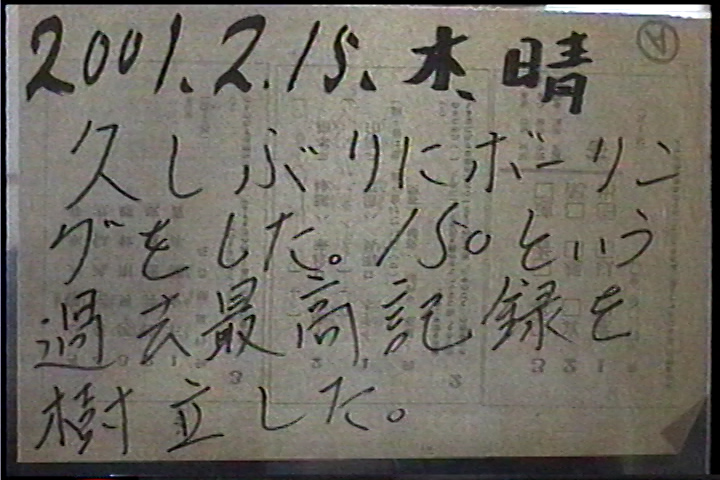 2001.2.15.木.晴
久しぶりにボーリン
グをした。150という
過去最高記録を
樹立した。